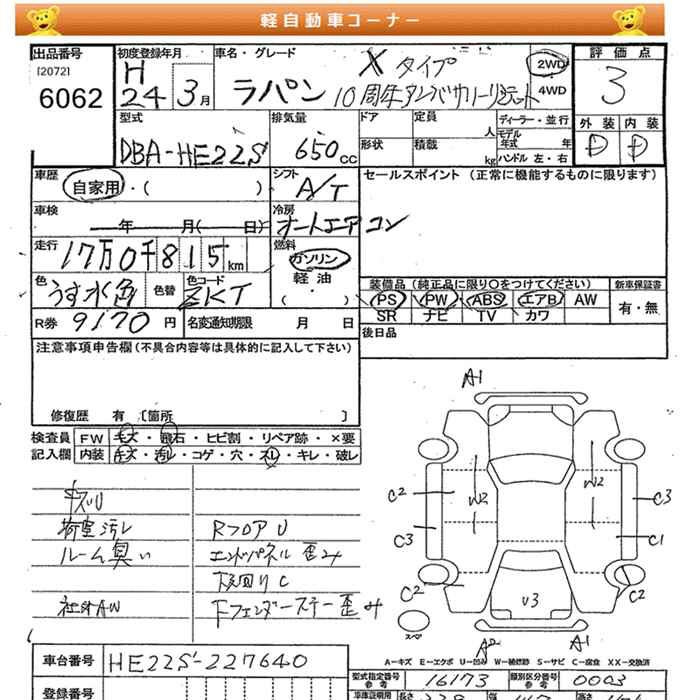 軽自動車コーナー
出品番号 初度登録年月 車名・グレード 評価点
[2072] H Xタイプ 2WD
6062 24 3月 ラパン 10周年アニバーサリーリミテット 4WD 3
型式 排気量 ドア 定員 ディーラー・並行 外装 内装
DBA-HE22S 650cc 人 モデル年式 年 D D
形状 積載 kg ハンドル 左・右
車歴 シフト セールスポイント (正常に機能するものに限ります)
自家用・( ) A/T
車検 冷房
年 月( 日) オートエアコン
走行 燃料
17万0千815km ガソリン
軽油
・( )
色 色替 色コード 装備品 (純正品に限り○をつけてください) 新車保証書
うす水色 ZKT PS PW ABS エアB AW 有・無
SR ナビ TV カワ
R券 9170円 名変通知期限 月 日 後日品
注意事項申告欄(不具合内容等は具体的に記入して下さい)
修復歴 有 〔箇所 〕
検査員 FW キズ・飛石・ヒビ割・リペア跡・×要
記入欄 内装 キズ・汚レ・コゲ・穴・スレ・キレ・破レ
キズU
荷室汚レ RフロアU
ルーム臭い エンドパネル歪み
下回りC
社外AW Fフェンダーステー歪み
A1
C2 W2 W2 C3
C3 C1
C2 U3 C2
スペア A2 A1
A-キズ E-エクボ U-凹み W-補修跡 S-サビ C-腐食 XX-交換済
車台番号 HE22S-227640
型式指定番号 参考 16173 類別区分番号 参考 0003
登録番号
車庫証明用 長さ